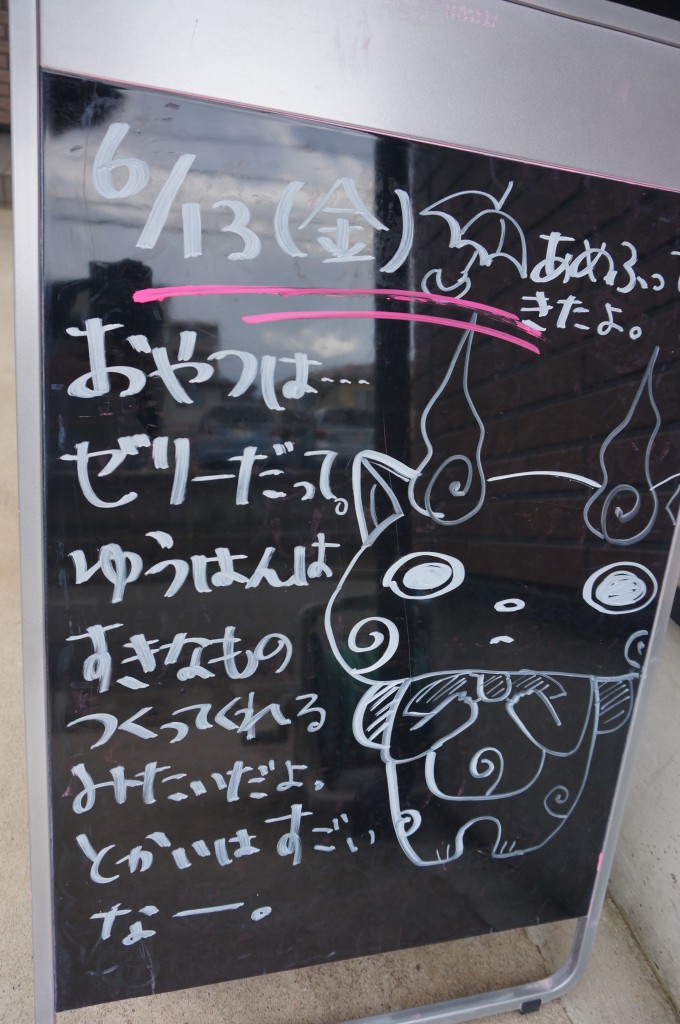 6/13(金)
あめふって
きたよ。
おやつは…
ゼリーだって。
ゆうはんは
すきなもの
つくってくれる
みたいだよ。
とかいはすごい
なー。